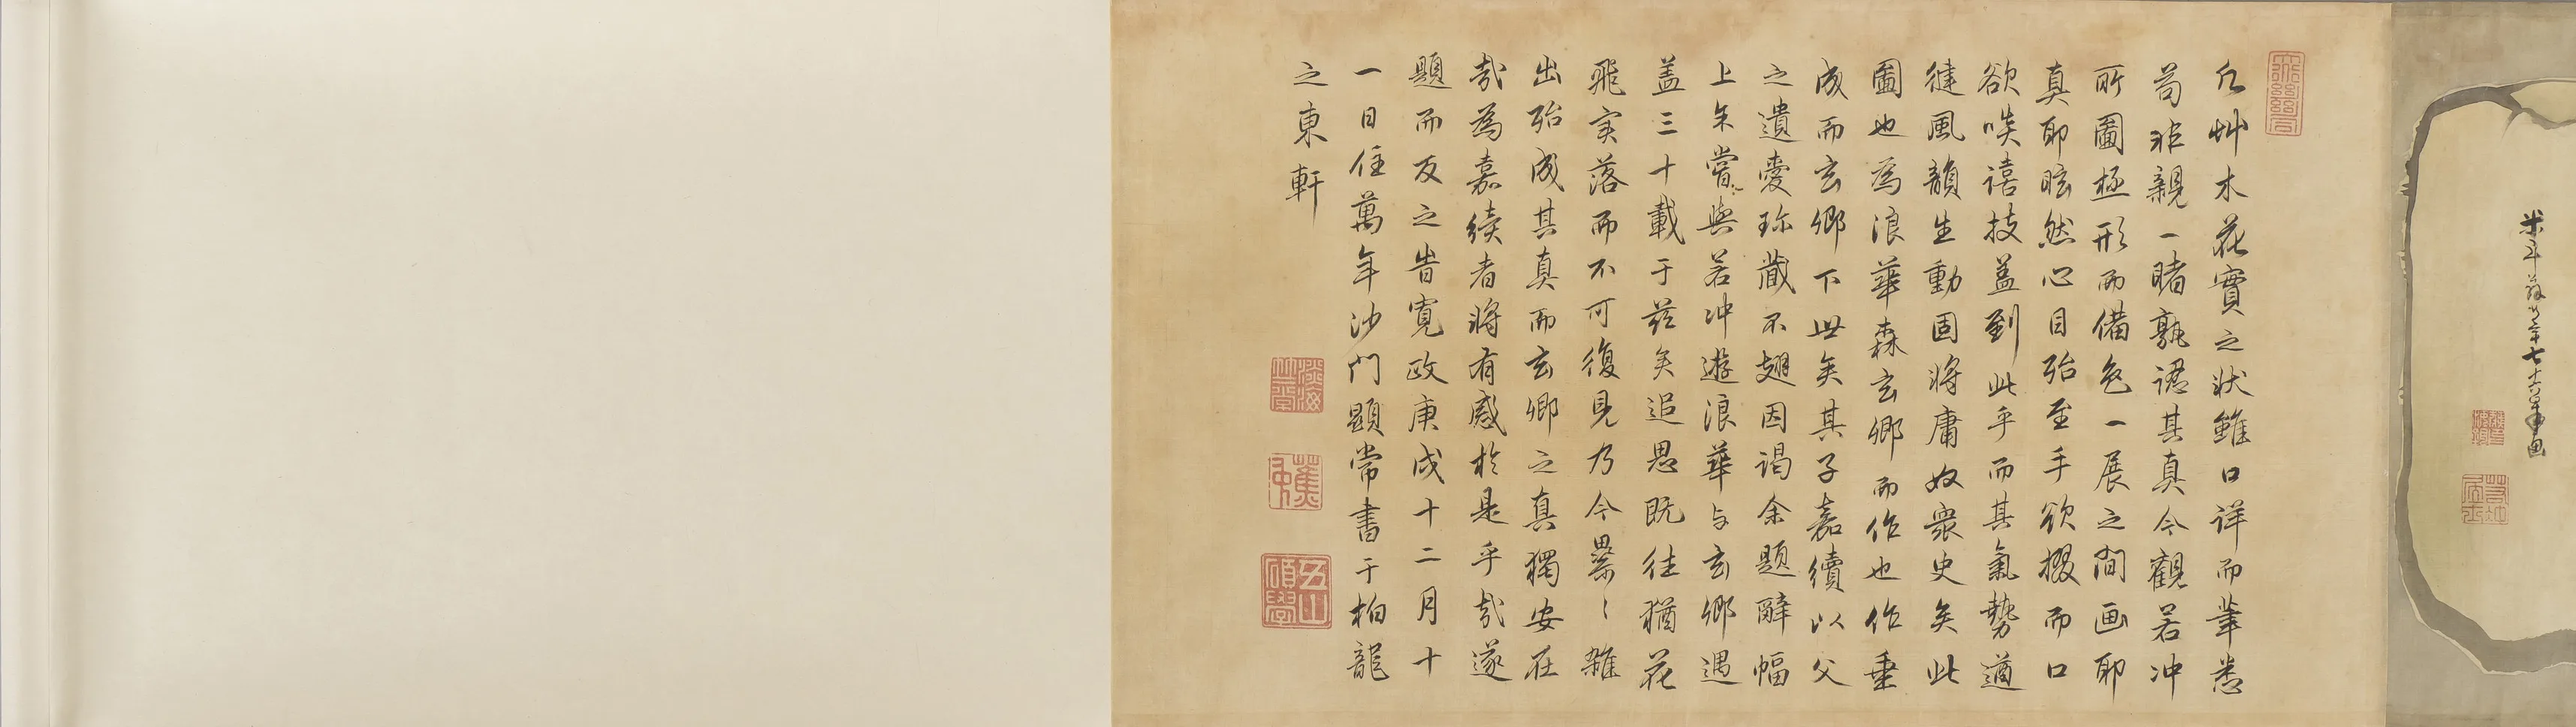 米斗翁行年七十六歳画
若冲居士
凡艸木花實之狀雖口詳而筆悉
苟非親一睹孰認其真今觀若冲
所圖極形而備色一展之間画耶
真耶眩然心目殆至手欲掇而口
欲啖譆技蓋到此乎而其氣勢遒
健風韻生動固將庸奴衆史矣此
圖也為浪華森玄卿而作也作垂
成而玄卿下世矣其子嘉續以父
之遺愛珎藏不翅因謁余題辭幅
上余嘗與若冲遊浪華与玄卿遇
蓋三十載于茲矣追思既往猶花
飛実落而不可復見乃今纍〻雜
出殆成其真而玄卿之真獨安在
哉為嘉續者將有感於是乎哉遂
題而反之旹寛政庚戌十二月十
一日住萬年沙門顯常書于栢龍
之東軒
淡海竺常
蕉中
五山碩學